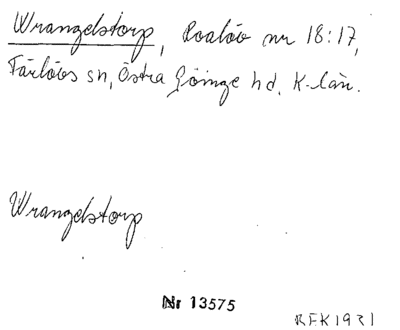 Wrangelstorp, Roalöv nr 18:17,
Färlövs sn, Östra Göinge hd, K-län.
Wrangelstorp
Nr 13575
REK 1931